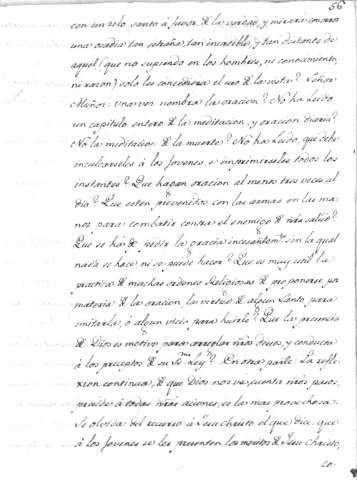 56
con un zelo santo á favor de la verdad, y mirará como
una osadia tan estraña, tan increible, y tan distante de
aquel (que no supiendo en los hombres, ni conocimiento,
ni razon) solo les concediera el uso de la vista? Señor
Muñoz: una vez nombra la oracion? No ha leido
un capitulo entero de la meditacion, y oracion diaria?
No la meditacion de la muerte? No ha leido, que debe
inculcarseles á los Jovenes, é imprimirseles todos los
instantes? Que hagan oracion al menos tres veces al
dia? Que esten prevenidos con las armas en las ma-
nos para combatir contra el enemigo de nra salud?
Que se ha de pedir la gracia incesantemte sin la qual
nada se hace, ni se puede hacer? Que es muy util la
practica de muchas ordenes Religiosas de proponerse por
materia de la oracion, la virtud de algun Santo, para
imitarla, ó algun vicio para huirle? Que la presencia
de Dios es motivo para arreglar nros deseos, y conducta
á los preceptos de su Sma Ley? En otra parte: La refle-
xion continua, de que Dios nos ve, cuenta nros pasos,
preside á todas nras acciones, es la mas provechosa.
Se olvida del recurso á Jesu Christo el que dice: que
á los Jovenes se les presenten los meritos de Jesu Christo,